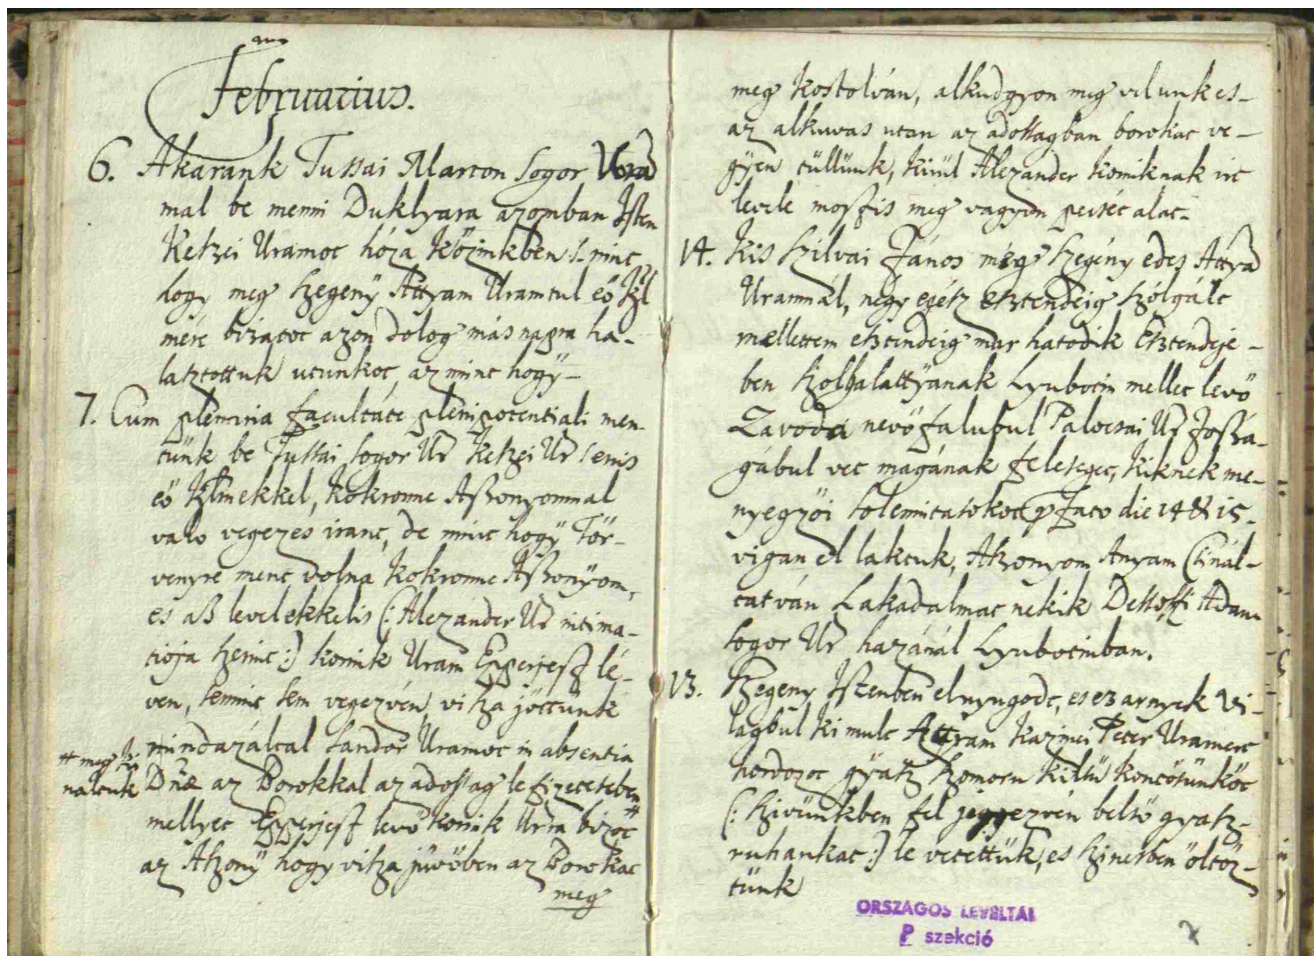 Februarius.
6. Akarank Tussai Marton Sogor Vra
mal be menni Duklyara azomban Isten
Ketzei Uramot hoza közinkben /. mint
hogy meg Szegenÿ Attyam Uramtul eö
mére bizatot azon dolog más napra ha-
laztottuk utunkot, az mint hogÿ-
7. Cum plenaria facultate plenipotentiali men-
tünk be Tussai Sogor Ur Ketzei Ur
eö klmekkel, Kokronne Aszonyomnal
valo vegezes irant, de mint hogÿ Tör-
venyre ment volna Kokronne Aszonÿom,
es aß levelekkelis (: Alexander Ur intima-
tioja szerint :) Komik Uram Eperjest lé-
ven, semmit sem vegezvén visza jöttünk
mindazáltal Sandor Uramot in absentia
Dnae az Borokkal az adossag le fizeteseben
# meg ki
naltuk
mellyet Eperjest levö Komik Ura bizot
az Aszonÿ hogy visza jüvöben az Borokat
meg
meg kostolván, alkudgyon meg velunk es-
az alkuvas utan az adossagban borokat ve-
gÿen tüllünk, kiül Alexander Komiknak irt
levele mostis meg vagyon
14. Kis Szilvai János még Szegény edes Attya
Uramnál, negy egész esztendeig szólgált
mellettem esztendeig mar hatodik Esztendeje-
ben szolgalattyanak Lyubotin mellet levö
Zavoda nevö falubul Palocsai Ur Jossa-
gábul vet magának feleseget, kiknek me-
nyegzöi solemnitasokot pfato die 14 & 15.
vigan el laktuk, Aszonyom Anyam Csinál-
tatván Lakadalmat nekik Dessöffi Adam
Sogor Ur hazánál Lyubotinban.
13. Szegeny Istenben elnyugodt, es ez arnyek vi-
lagbul ki mult Attyam Kazmei Peter Uramert
hordozot gyasz szomoru külsü köntösünköt
(: Szivünkben fel jegyezvén belsö gyasz-
ruhankat :) le vetettük, es szinesben öltöz-
tünk
ORSZÁGOS LEVÉLTÁR
P szekció